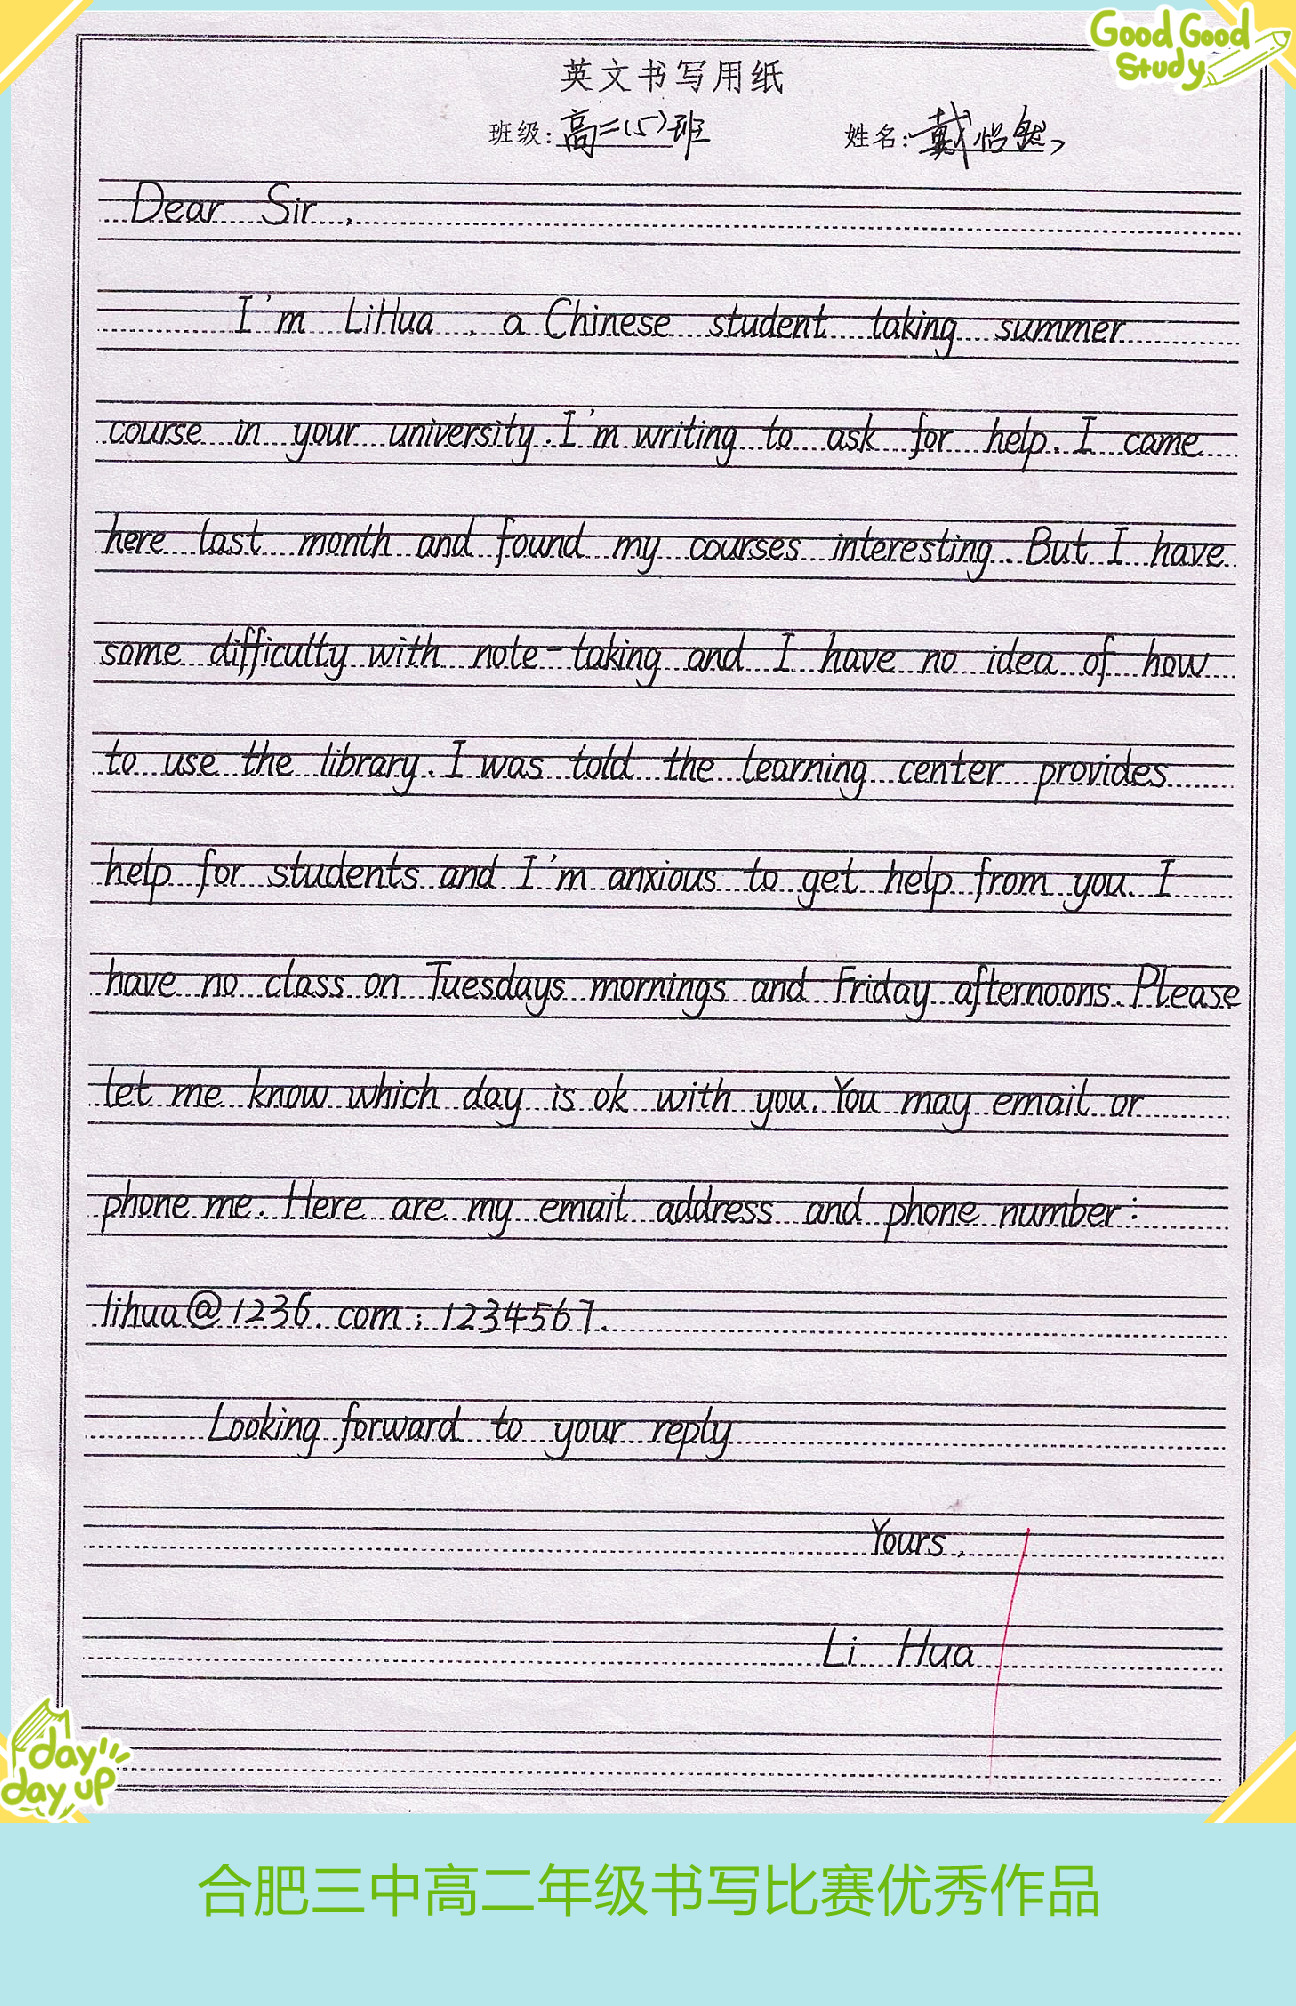 Good Good
Study
英文书写用纸
班级: 高二(5)班 姓名: 戴怡然
Dear Sir,
I'm LiHua, a Chinese student taking summer
course in your university. I'm writing to ask for help. I came
here last month and found my courses interesting. But I have
some difficulty with note-taking and I have no idea of how
to use the library. I was told the learning center provides
help for students and I'm anxious to get help from you. I
have no class on Tuesdays mornings and Friday afternoons. Please
let me know which day is ok with you. You may email or
phone me. Here are my email address and phone number:
lihua@1236.com; 1234567.
Looking forward to your reply
Yours,
Li Hua
day
day up
合肥三中高二年级书写比赛优秀作品